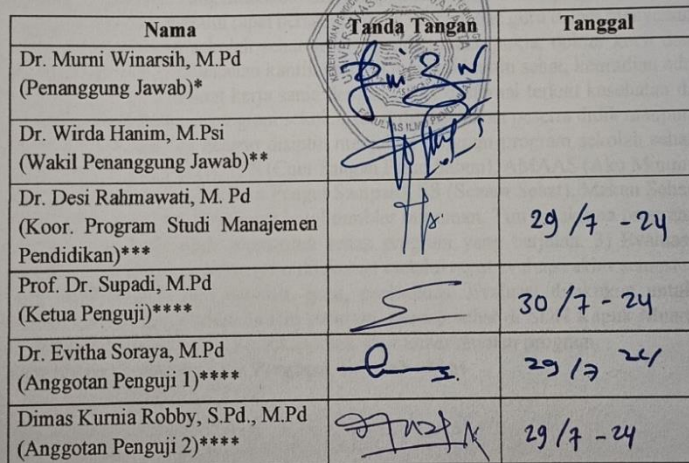 Nama Tanda Tangan Tanggal
Dr. Murni Winarsih, M.Pd
(Penanggung Jawab)*
Dr. Wirda Hanim, M.Psi
(Wakil Penanggung Jawab)**
Dr. Desi Rahmawati, M. Pd
(Koor. Program Studi Manajemen
Pendidikan)***
29/7 24
Prof. Dr. Supadi, M.Pd
(Ketua Penguji)****
30/7-24
Dr. Evitha Soraya, M.Pd
(Anggotan Penguji 1)****
29/7 24
Dimas Kurnia Robby, S.Pd., M.Pd
(Anggotan Penguji 2)****
29/7-24